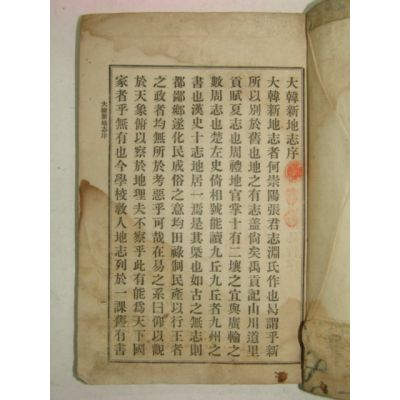 大韓新地志序
大韓新地志者何崇陽張君志淵氏作也曷謂乎新
所以別於舊也地之有志盖尙矣禹貢記山川道里
貢賦夏志也周禮地官掌十有二壤之宜與廣輪之
數周志也楚左史倚相號能讀九丘九丘者九州之
書也漢史十志地居一焉是其槩也如古之無志則
都鄙鄕遂化民成俗之意均田祿制民產以行王者
之政者均無所於考惡乎可哉在易之系曰仰以觀
於天象俯以察於地理夫不察乎此有能爲天下國
家者乎無有也今學校敎人地志列於一課舊有書
大韓新地志序